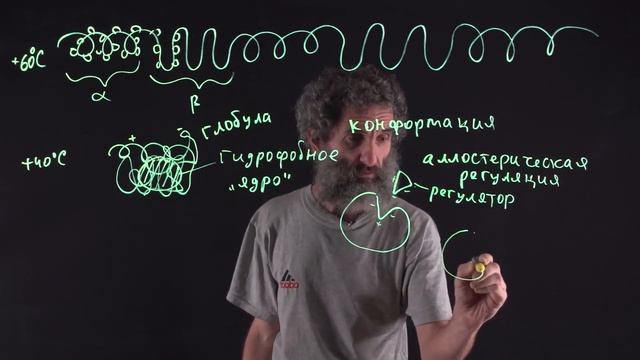 +60°C
α
β
+
-
глобула
+40°C
гидрофобное
„ядро"
конформация
аллостерическая
регуляция
регулятор
- -
+